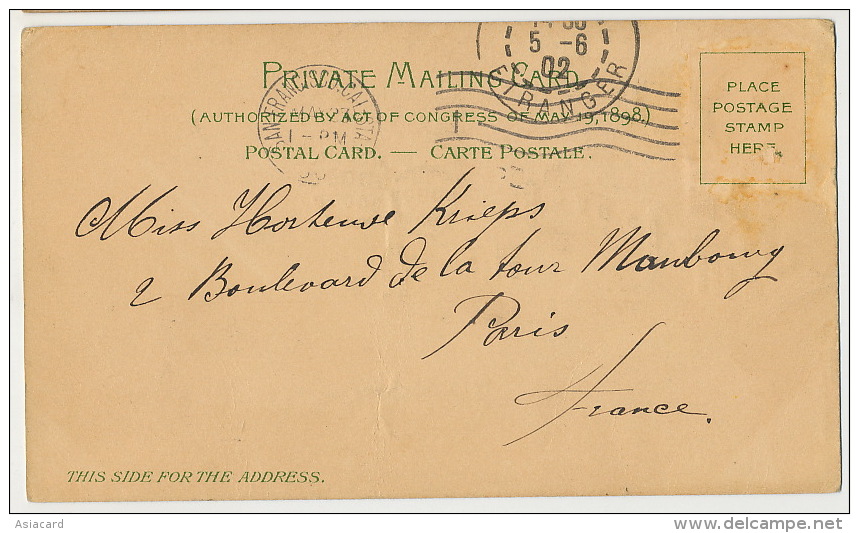 PRIVATE MAILING CARD
(AUTHORIZED BY ACT OF CONGRESS OF MAY 19, 1898.)
POSTAL CARD. — CARTE POSTALE.
SAN FRANCISCO, CAL. STA
1 - PM
5 -6
02
ETRANGER
PLACE
POSTAGE
STAMP
HERE
Miss Hortense Krieps
2 Boulevard de la tour Maubourg
Paris
France.
THIS SIDE FOR THE ADDRESS.
Asiacard
www.delcampe.net